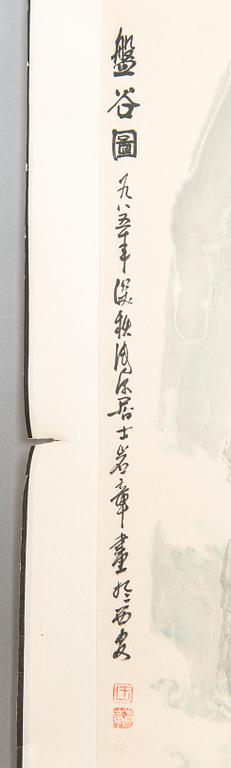 盤谷圖
一九八五年深秋清泉居士岩章畫於西安